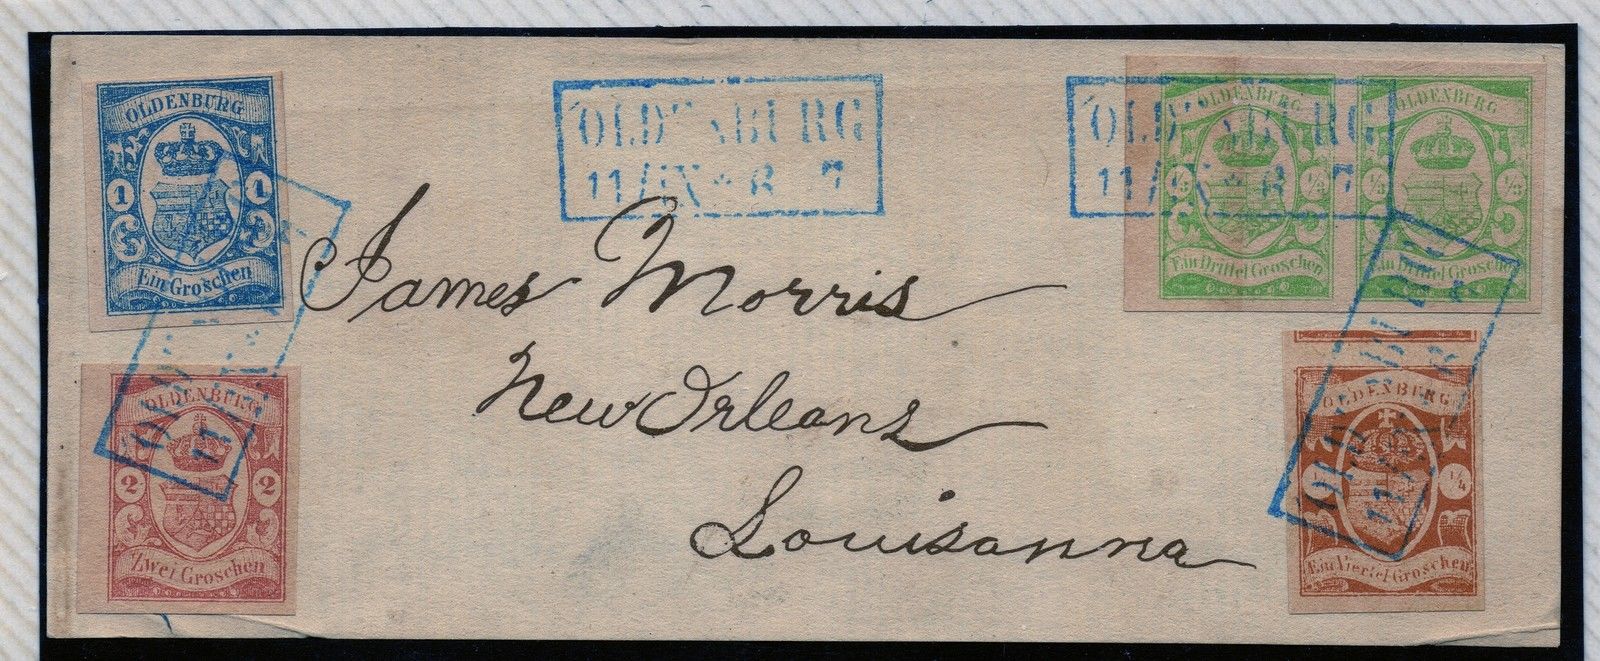 OLDENBURG
1 1
Ein Groschen
OLDENBURG
11/IX * 6 7
OLDENBURG
11/IX * 6 7
OLDENBURG
1/3 1/3
Ein Drittel Groschen
OLDENBURG
1/3 1/3
Ein Drittel Groschen
James Morris
New Orleans
Louisanna
OLDENBURG
2 2
Zwei Groschen
OLDENBURG
1/4
Ein Viertel Groschen
OLDENBURG
11